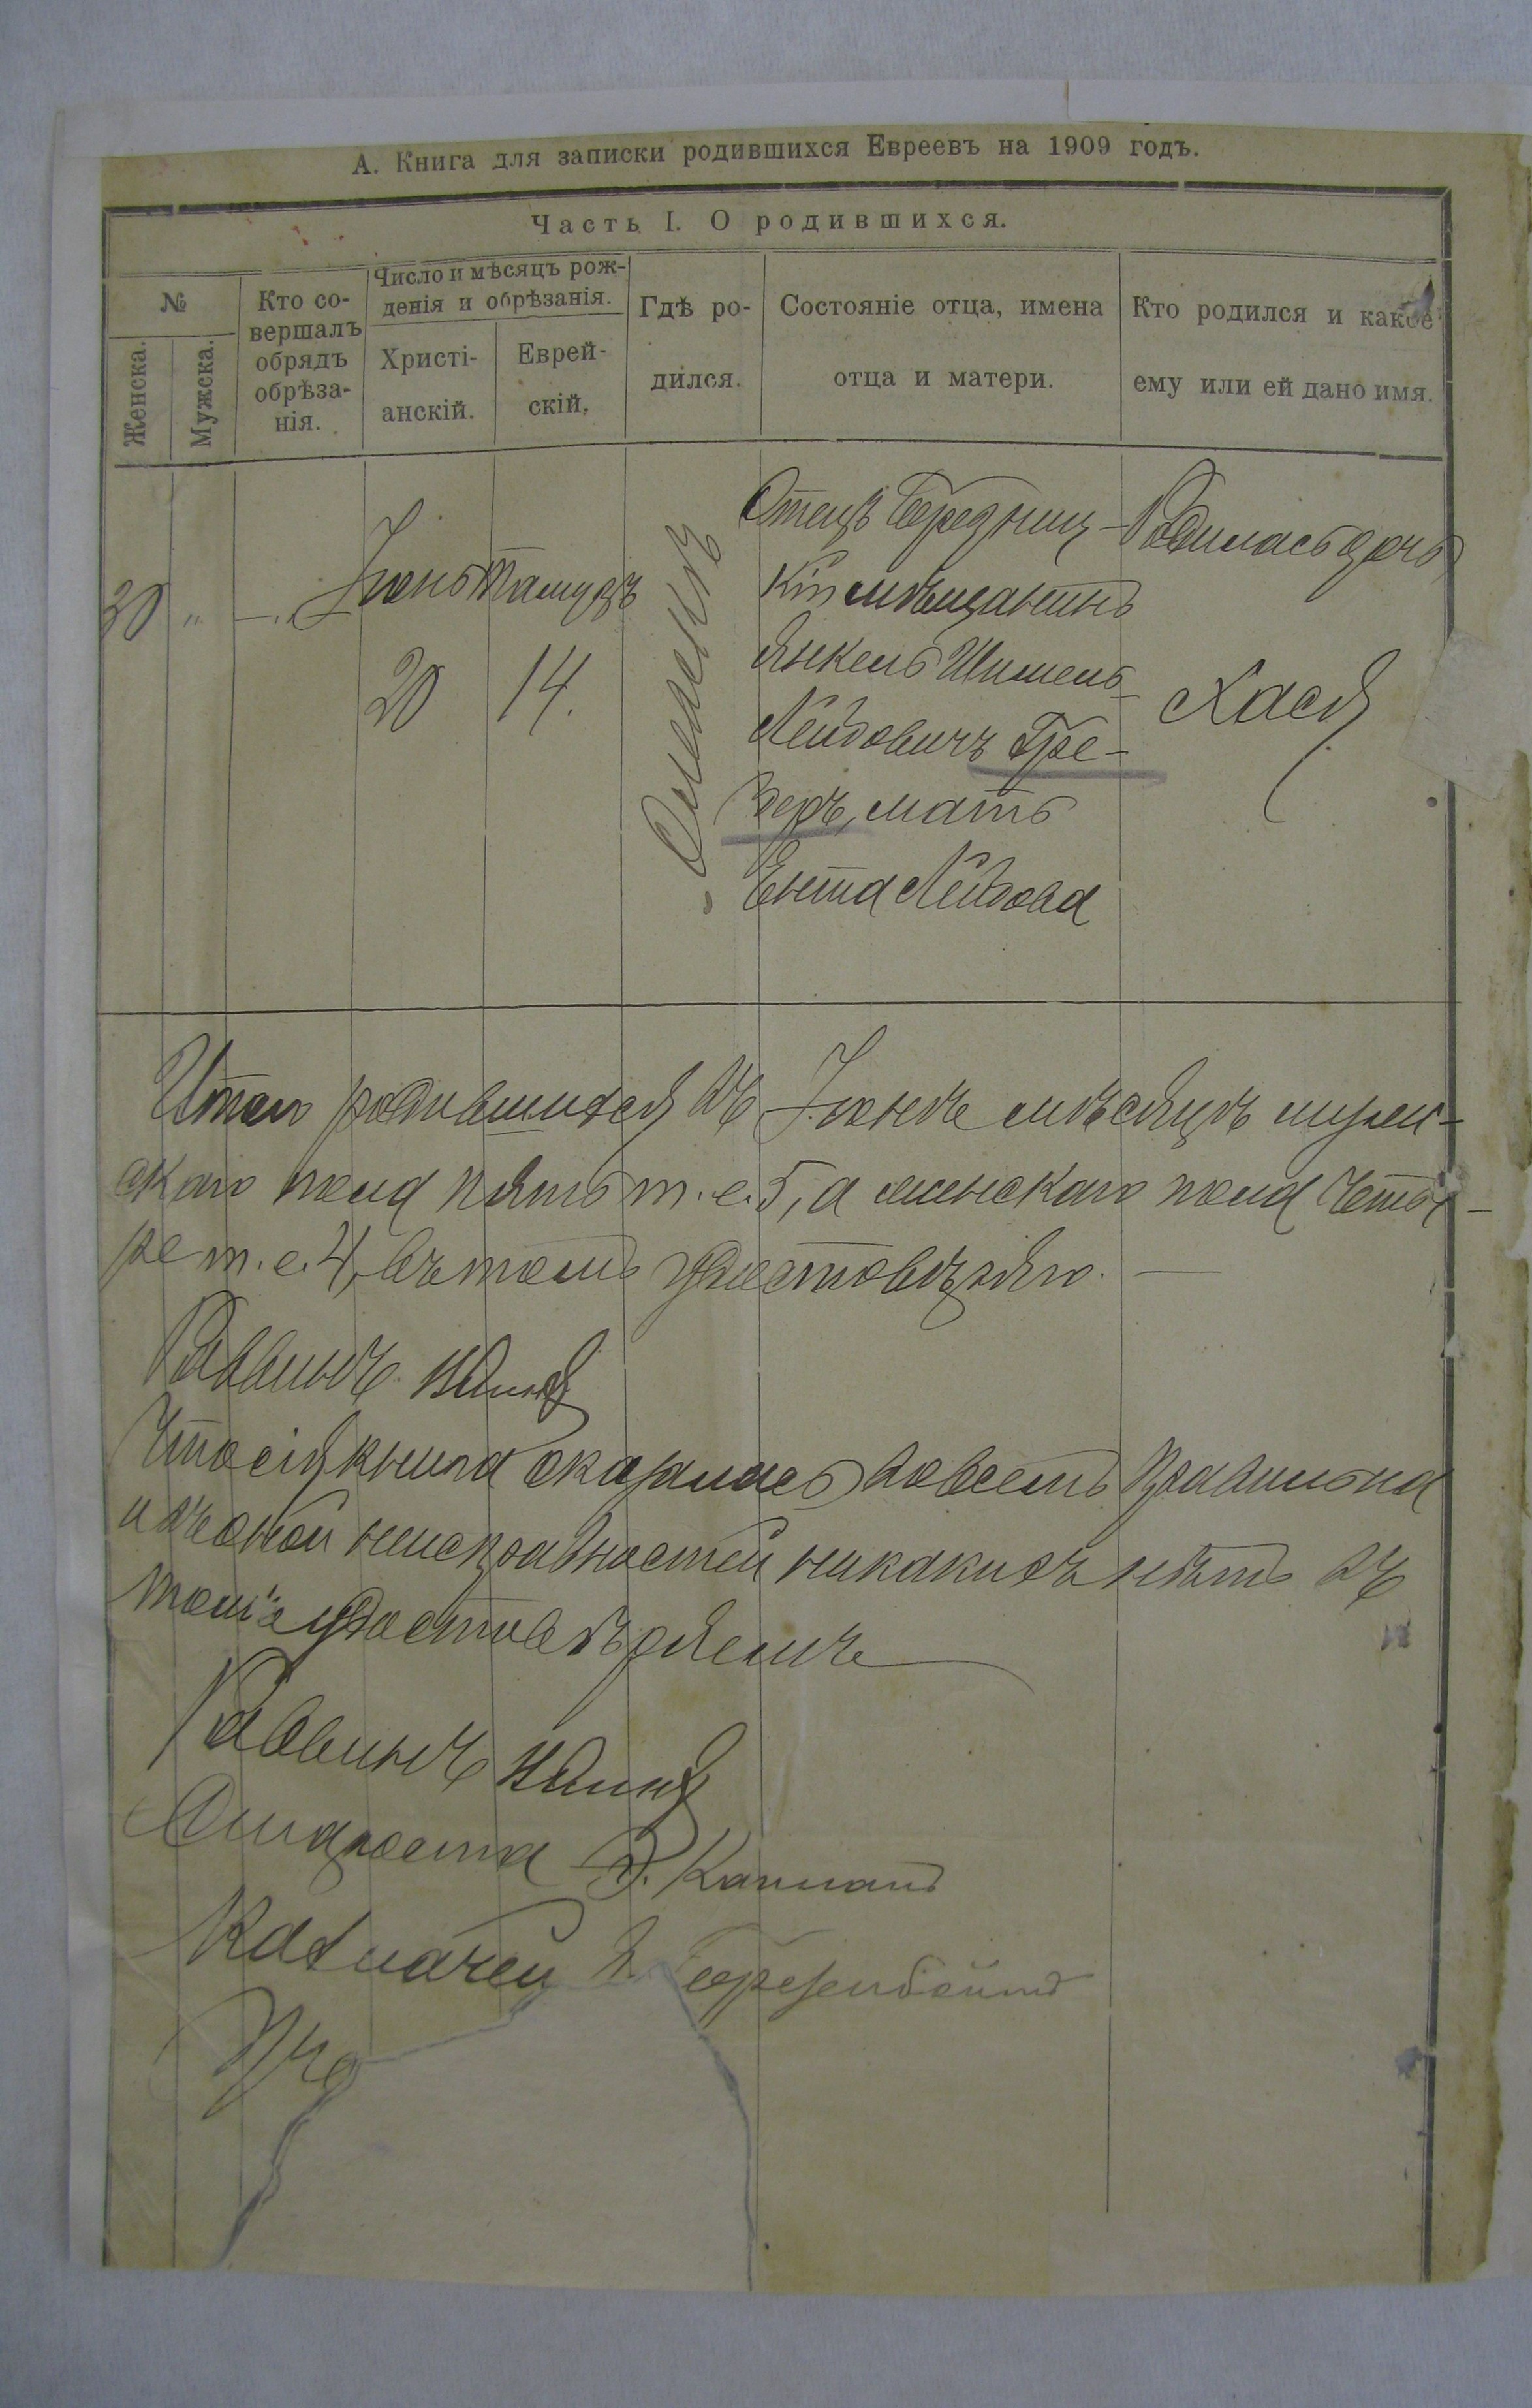 А. Книга для записки родившихся Евреевъ на 1909 годъ.
Часть I. О родившихся.
№
Женска.
Мужска.
Кто со-
вершалъ
обрядъ
обрѣза-
нія.
Число и мѣсяцъ рож-
денія и обрѣзанія.
Христі-
анскій.
Еврей-
скій.
Гдѣ ро-
дился.
Состояніе отца, имена
отца и матери.
Кто родился и какое
ему или ей дано имя.
30 " —
Іюнь
20
Тамузъ
14.
Отецъ Середниц-
кій мѣщанинъ
Янкель Шмиель-
Лейбовичъ Гре-
зеръ, мать
Ента Лейбова
Родилась дочь
Хася
Итого родившихся въ Іюнѣ мѣсяцѣ муж-
скаго пола пять т. е. 5, а женскаго пола четы-
ре т. е. 4, въ томъ удостовѣряю. —
Раввинъ
Что сія книга оказалась во всемъ правильна
и въ оной неисправностей никакихъ нѣтъ въ
томъ удостовѣряемъ
Раввинъ
Староста Капланъ
Казначей